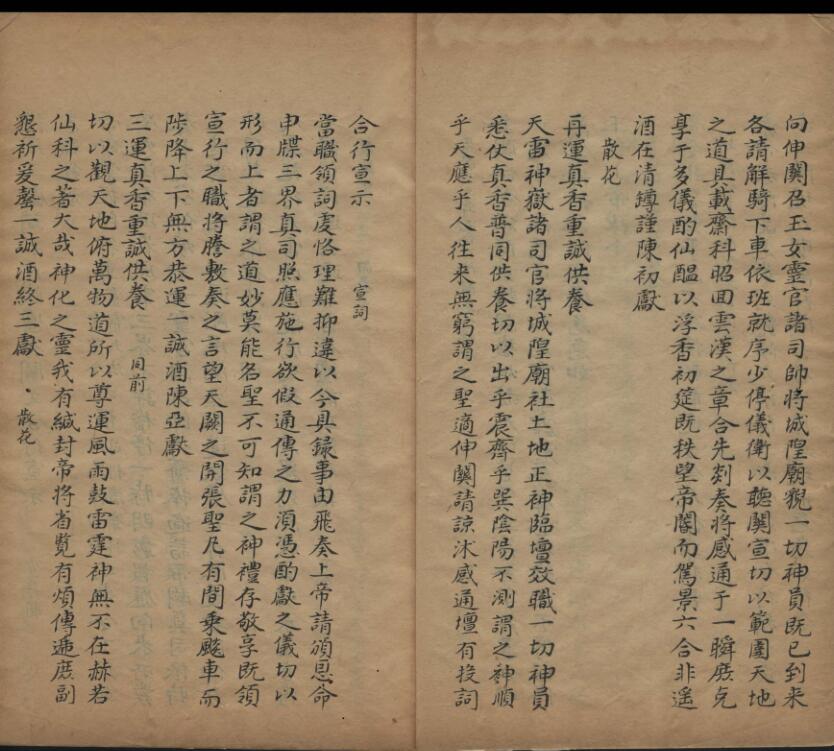 向伸関召玉女靈官諸司帥將城隍廟貌一切神員既已到來
各請解騎下車依班就序少停儀衛以聽関宣切以範圍天地
之道具載齋科昭回雲漢之章合先剡奏將感通于一瞬庶克
享于多儀酌仙醞以浮香初筵既秩望帝閽而駕景六合非遥
酒在清鐏謹陳初獻
散花
再運真香重誠供養
天雷神嶽諸司官將城隍廟社土地正神臨壇效職一切神員
悉仗真香普同供養切以出乎震齊乎巽陰陽不測謂之神順
乎天應乎人往來無窮謂之聖適伸関請諒沐感通壇有投詞
合行宣示
宣詞
當職領詞虔恪理難抑違以今具録事由飛奏上帝請頒恩命
申牒三界真司照應施行欲假通傳之力湏憑酌獻之儀切以
形而上者謂之道妙莫能名聖不可知謂之神禮存敬享既領
宣行之職將謄敷奏之言望天闕之開張聖凡有間乗飈車而
陟降上下無方恭運一誠酒陳亞獻
三運真香重誠供養 同前
切以觀天地俯萬物道所以尊運風雨鼓雷霆神無不在赫若
仙科之著大哉神化之靈我有緘封帝將省覽有煩傳遞庶副
懇祈爰罄一誠酒終三獻 散花